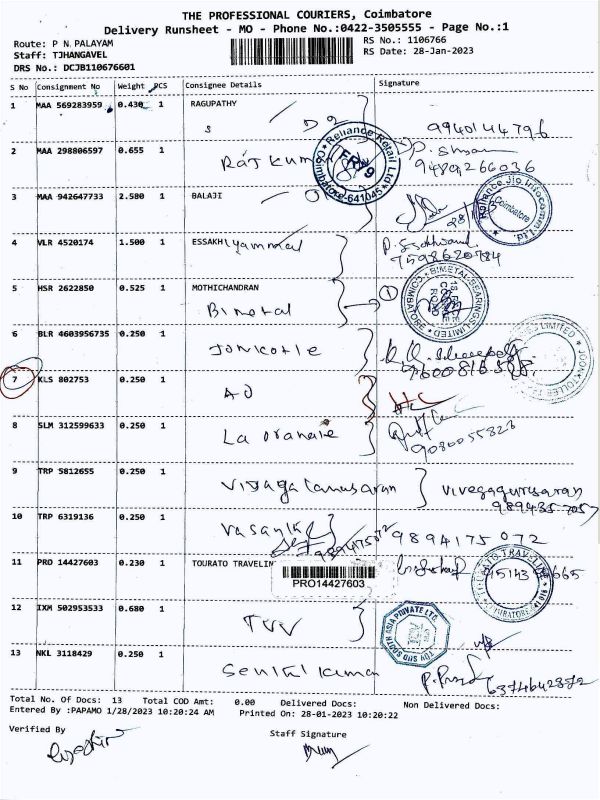 THE PROFESSIONAL COURIERS, Coimbatore
Delivery Runsheet - MO - Phone No.:0422-3505555 - Page No.:1
Route: P N PALAYAM
RS No.: 1106766
Staff: TJHANGAVEL
RS Date: 28-Jan-2023
DRS No.: DCJB110676601
S No Consignment No Weight PCS Consignee Details Signature
1 MAA 569283959 0.430 1 RAGUPATHY
S D2 9940144796
2 MAA 298806597 0.655 1 Raj Kum
9489266036
Reliance Retail Ltd Coimbatore-641045
3 MAA 942647733 2.580 1 BALAJI
28/1/23
Reliance Jio Infocomm Ltd Coimbatore
4 VLR 4520174 1.500 1 ESSAKHIyammal
7598620784
5 HSR 2622850 0.525 1 MOTHICHANDRAN
Bimetal 1
BIMETAL BEARINGS LIMITED COIMBATORE
6 BLR 4603956735 0.250 1
7 KLS 802753 0.250 1 AO
8 SLM 312599633 0.250 1
9080055826
9 TRP 5812655 0.250 1
vivegagurusaran
989435
10 TRP 6319136 0.250 1
9894175072
11 PRO 14427603 0.230 1 TOURATO TRAVELIN
PRO14427603
12 IXM 502953533 0.680 1 TUV
TUV SUD SOUTH ASIA PRIVATE LTD.
13 NKL 3118429 0.250 1 Senthil Kumar
6374642872
Total No. Of Docs: 13 Total COD Amt: 0.00 Delivered Docs: Non Delivered Docs:
Entered By :PAPAMO 1/28/2023 10:20:24 AM Printed On: 28-01-2023 10:20:22
Verified By
Staff Signature